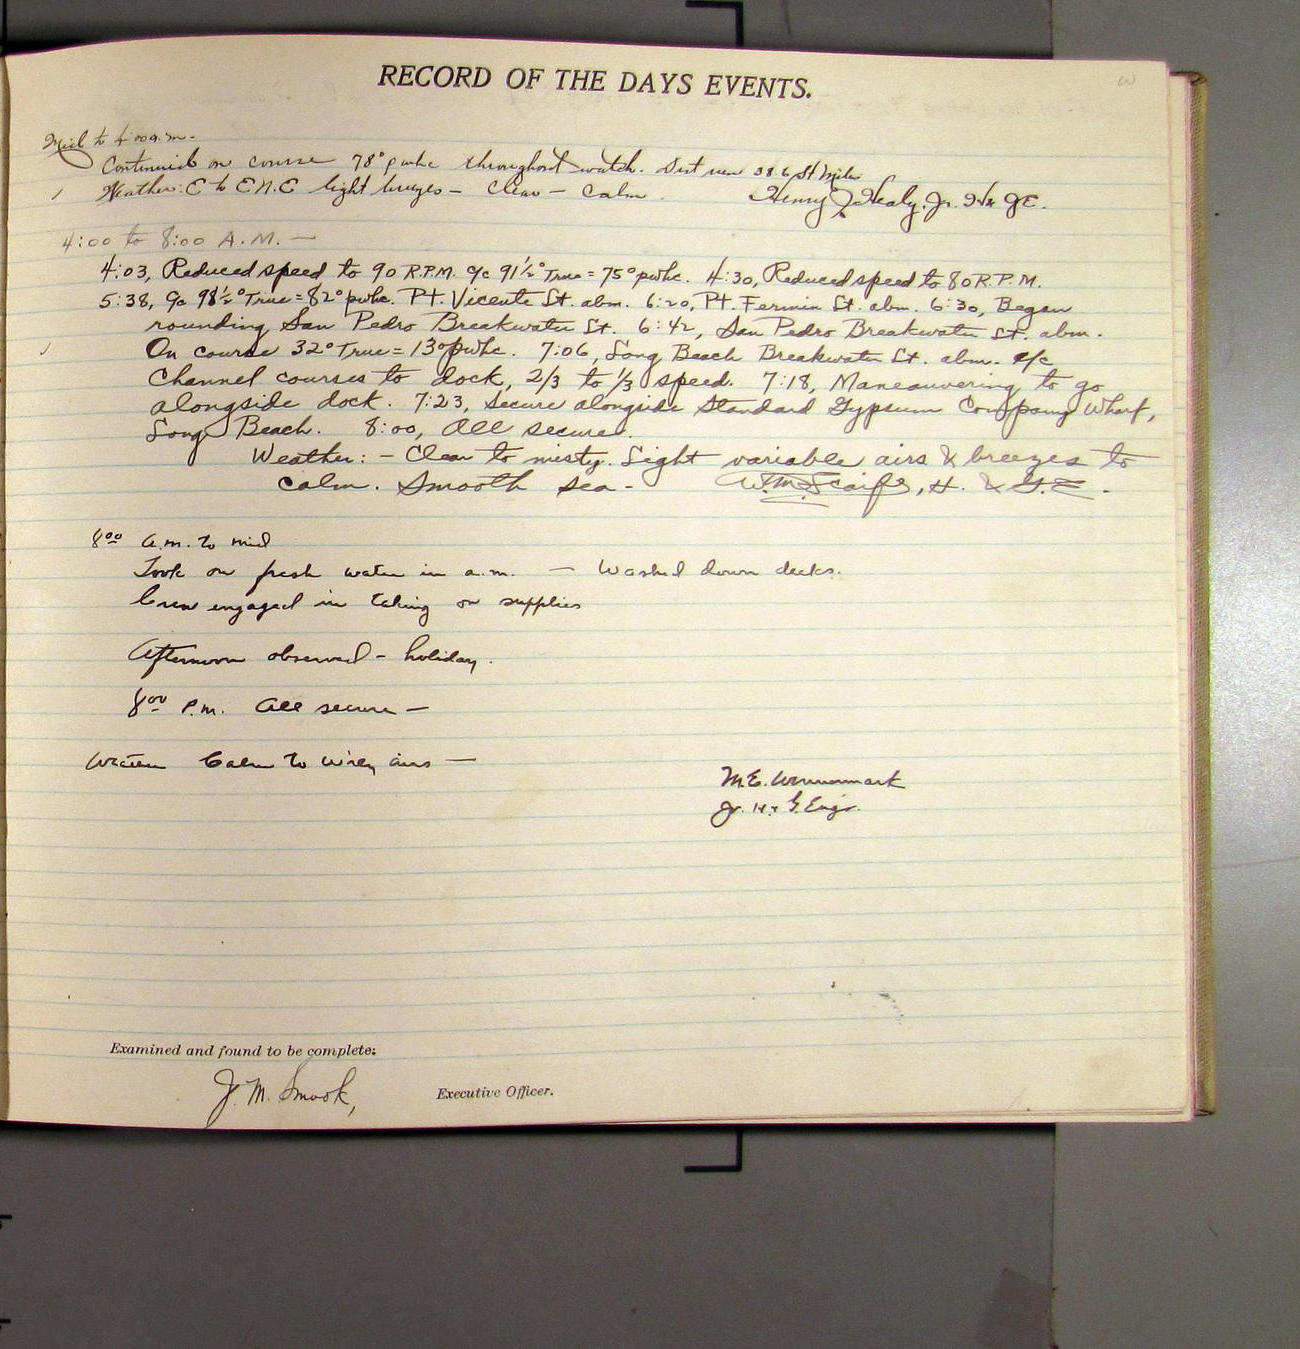 RECORD OF THE DAYS EVENTS.
Mid to 4:00 a.m.-
Continued on course 78° pwhc throughout watch. Dist run 38.6 St Miles
Weather: E to ENE light breezes - clear - calm. Henry J. Healy, Jr. H & GE.
4:00 to 8:00 A.M. —
4:03, Reduced speed to 90 R.P.M. c/c 91½° True = 75° pwhc. 4:30, Reduced speed to 80 R.P.M.
5:38, c/c 98½° True = 82° pwhc. Pt. Vicente Lt. abm. 6:20, Pt. Fermin Lt. abm. 6:30, Began
rounding San Pedro Breakwater Lt. 6:42, San Pedro Breakwater Lt. abm.
On course 32° True = 13° pwhc. 7:06, Long Beach Breakwater Lt. abm. c/c
Channel courses to dock, 2/3 to 1/3 speed. 7:18, Maneauvering to go
alongside dock. 7:23, secure alongside Standard Gypsum Company Wharf,
Long Beach. 8:00, All secured.
Weather: - Clear to misty. Light variable airs & breezes to
calm. Smooth sea - W.M. Scaife, H. & G.E.
8:00 a.m. to mid
Took on fresh water in a.m. — Washed down decks.
Crew engaged in taking on supplies
Afternoon observed - holiday.
8:00 P.m. All secure —
Weather Calm to W'rly airs —
M.E. Wennermark
Jr. H. & G. Engr.
Examined and found to be complete:
J. M. Smook,
Executive Officer.